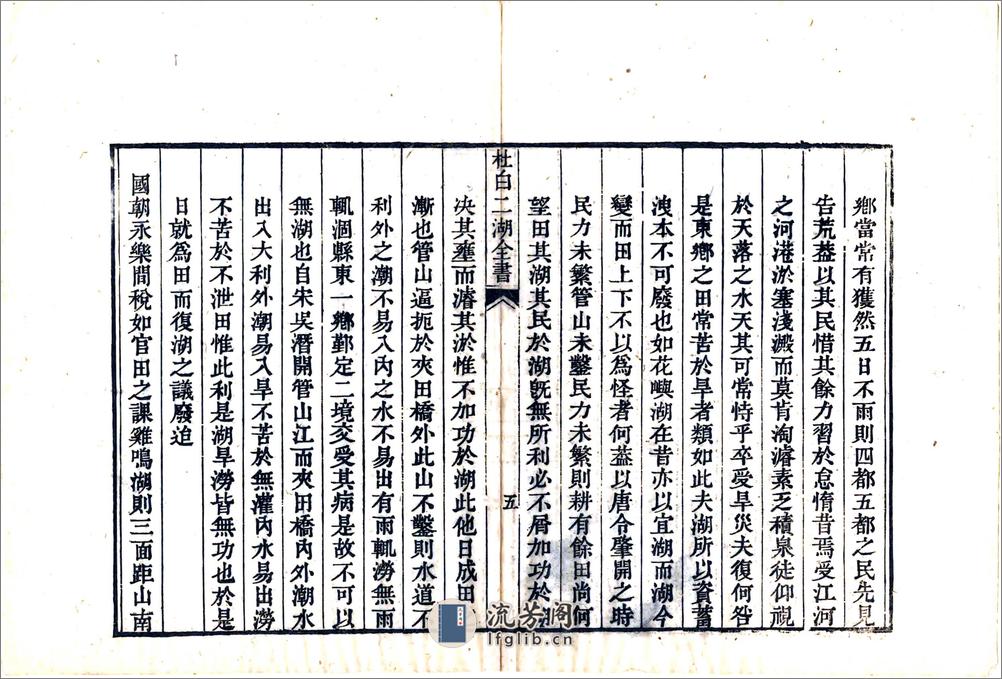 鄉當常有獲然五日不雨則四都五都之民先見
告荒葢以其民惜其餘力習於怠惰昔焉受江河
之河港淤塞淺澱而莫肯淘濬素乏積泉徒仰視
於天落之水天其可常恃乎卒愛旱災夫復何咎
是東鄉之田常苦於旱者類如此夫湖所以資蓄
洩本不可廢也如花嶼湖在昔亦以宜湖而湖今
變而田上下不以為怪者何葢以唐令肇開之時
民力未繁管山未鑿民力未繁則耕有餘田尚何
望田其湖其民於湖旣無所利必不屑加功於
杜白二湖全書
五
決其壅而濬其淤惟不加功於湖此他日成田
漸也管山逼扼於夾田橋外此山不鑿則水道不
利外之潮不易入內之水不易出有雨輒澇無雨
輒涸縣東一鄉鄞定二境交受其病是故不可以
無湖也自宋吳潛開管山江而夾田橋內外潮水
出入大利外潮易入旱不苦於無灌內水易出澇
不苦於不泄田惟此利是湖旱澇皆無功也於是
日就為田而復湖之議廢迨
國朝永樂間稅如官田之課雞鳴湖則三面距山南
流芳阁
lfglib.cn